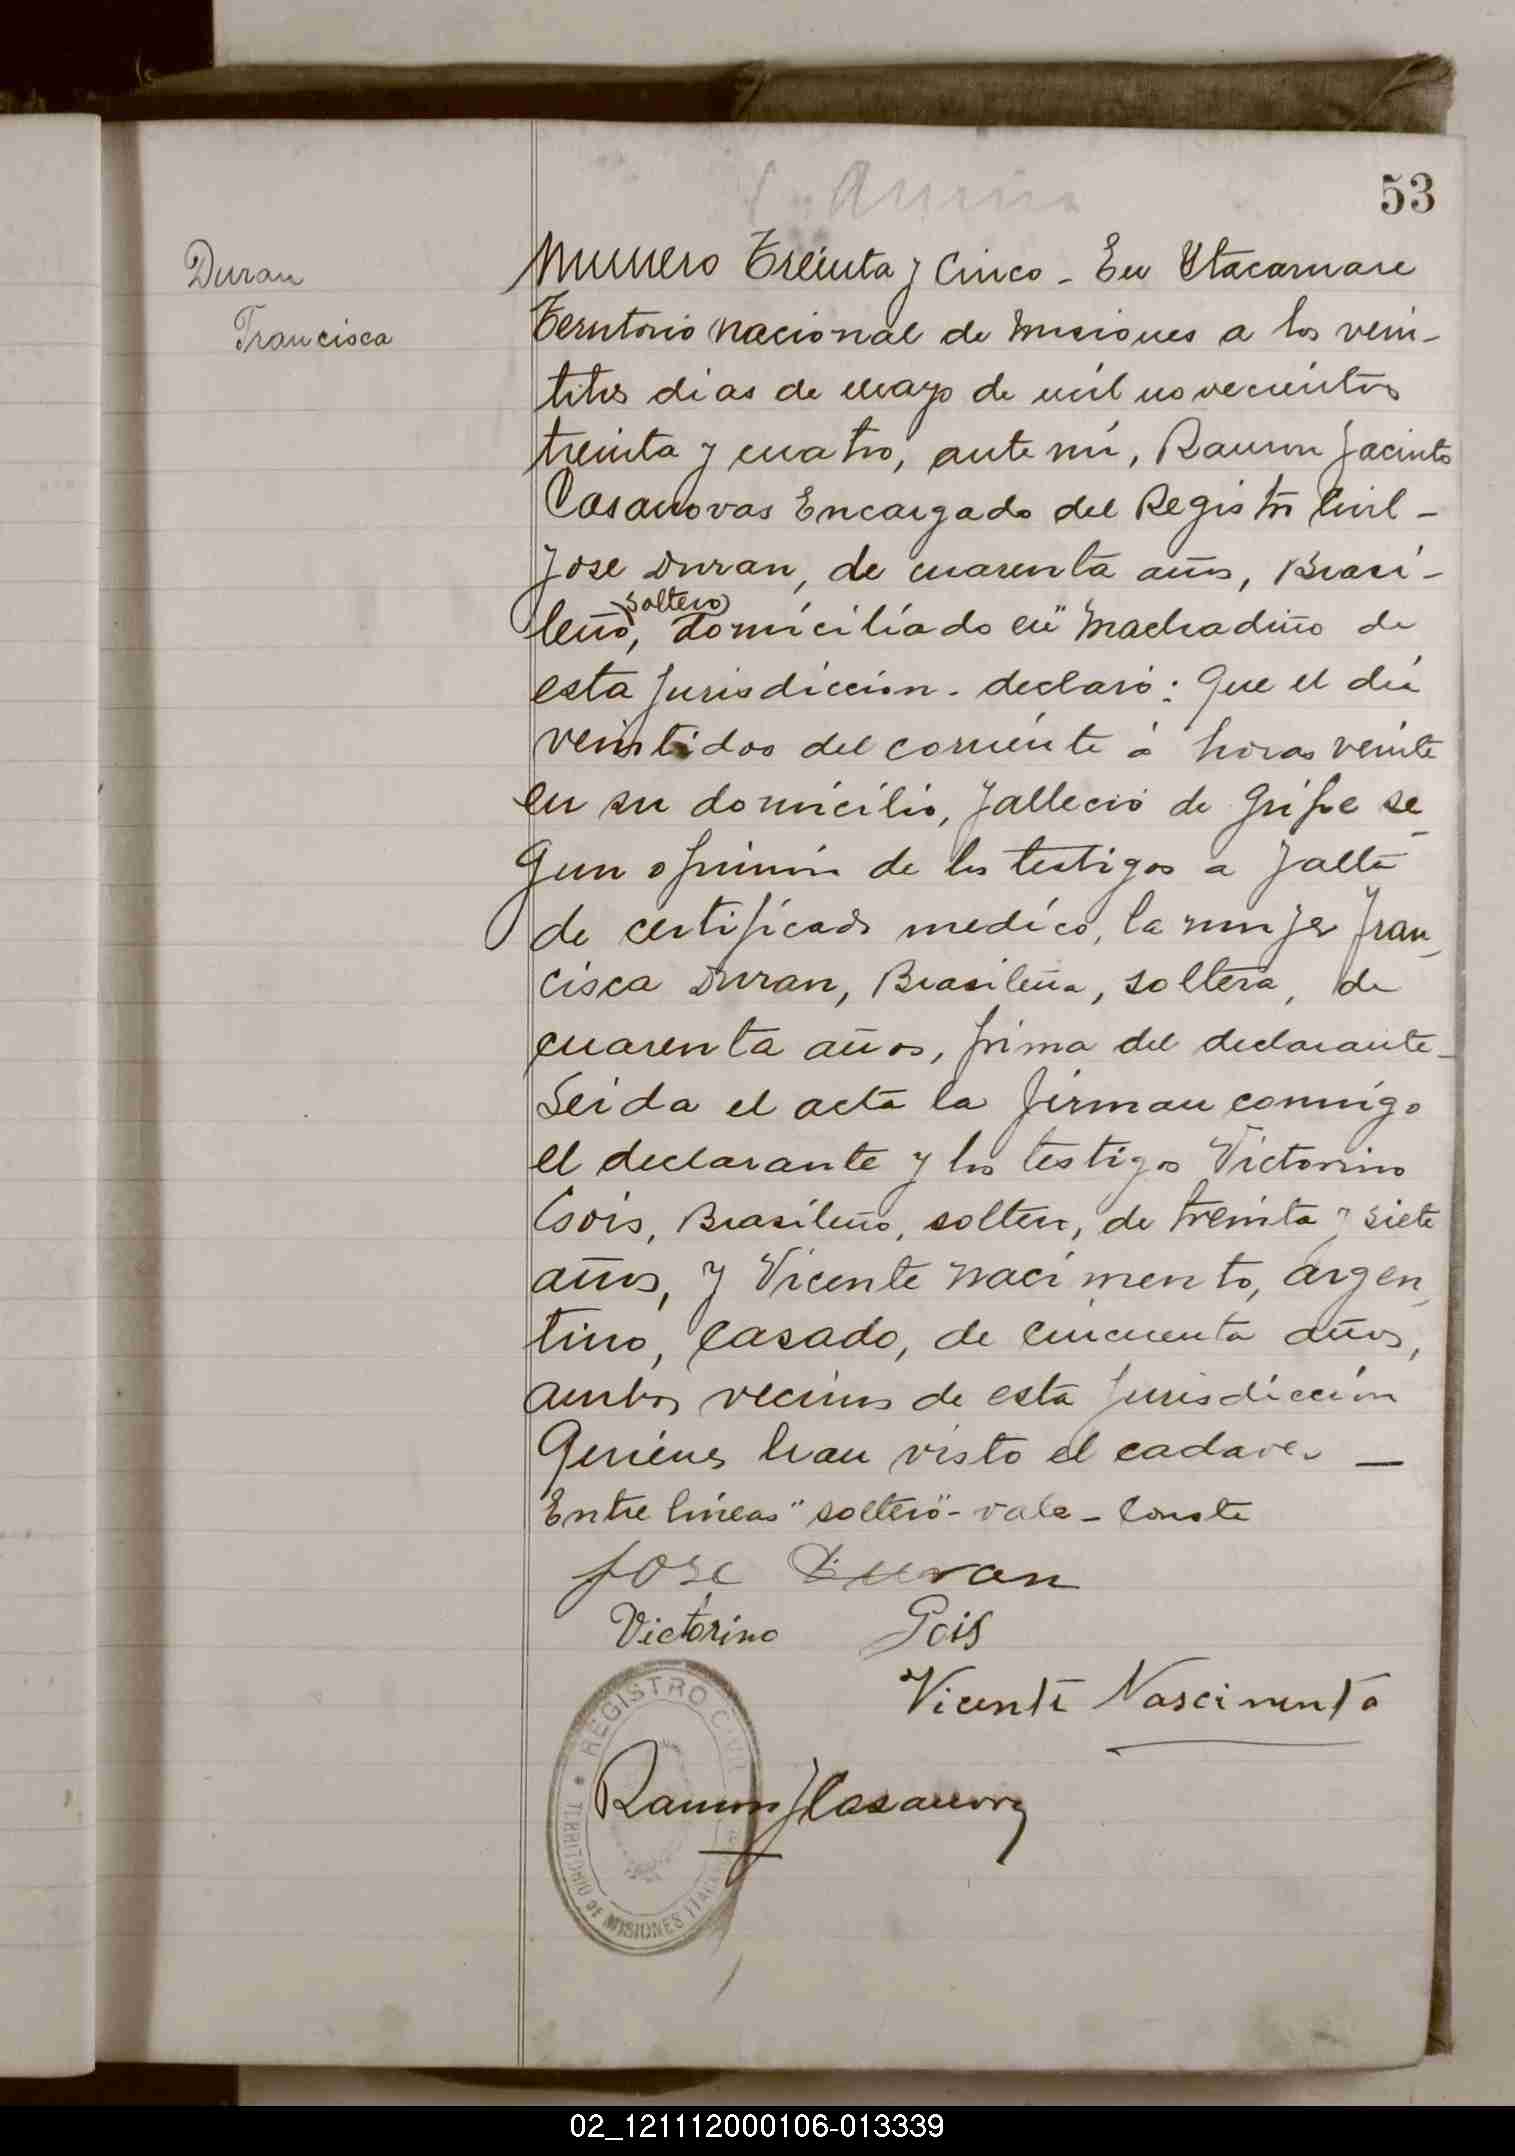 53
Duran
Francisca
Numero Treinta y Cinco - En Itacaruare
Territorio Nacional de Misiones a los vein-
titrés dias de mayo de mil novecientos
treinta y cuatro, ante mi, Ramon Jacinto
Casanovas Encargado del Registro Civil -
Jose Duran, de cuarenta años, Brasi-
soltero
leño, domiciliado en "Machadiño de
esta Jurisdiccion - declaró: Que el dia
veintidos del corriente á horas veinte
en su domicilio, falleció de gripe se-
gun opinion de los testigos a falta
de certificado medico, la mujer Fran-
cisca Duran, Brasileña, soltera, de
cuarenta años, prima del declarante -
Leida el acta la firman conmigo
el declarante y los testigos Victorino
Gois, Brasileño, soltero, de treinta y siete
años, y Vicente Nacimento, argen-
tino, casado, de cincuenta años,
ambos vecinos de esta Jurisdicción
Quienes han visto el cadaver —
Entre lineas "soltero" - vale - Conste
Jose Duran
Victorino Gois
Vicente Nascimento
REGISTRO CIVIL
Ramon J Casanovas
TERRITORIO DE MISIONES
02_121112000106-013339